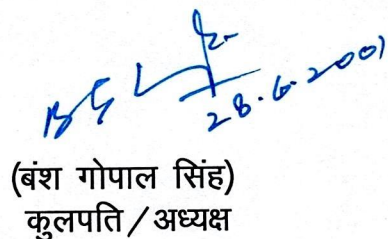 28.6.2001
(बंश गोपाल सिंह)
कुलपति/अध्यक्ष